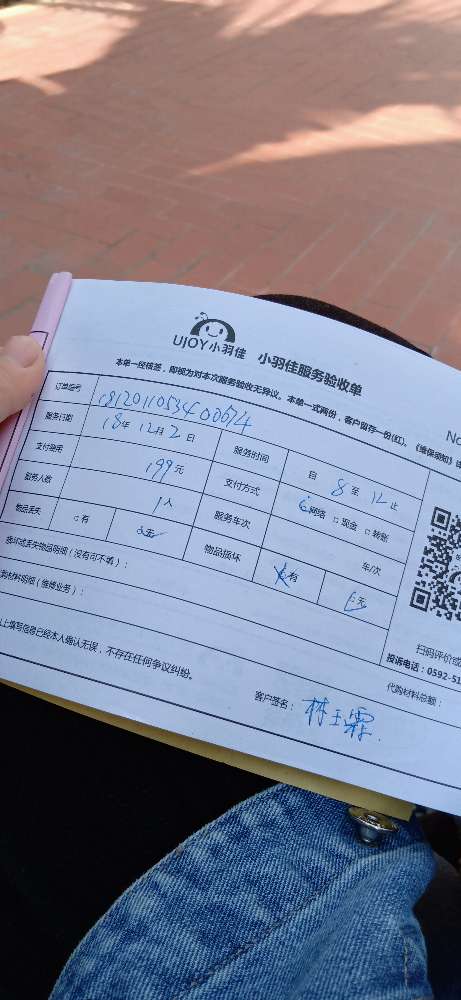 UJOY小羽佳 小羽佳服务验收单
本单一经核签，即视为对本次服务验收无异议。本单一式两份，客户留存一份(红)。《维保须知》
No
订单编号 1812011053400674
服务日期 18年 12月 2日 服务时间 自 8 至 12 止
支付费用 199元 支付方式 网络 □现金 □转账
服务人数 1人 服务车次 车/次
物品丢失 □有 无 物品损坏 有 无
损坏或丢失物品明细（没有可不填）：
材料明细（维修业务）：
扫码评价或
投诉电话：0592-51
代购材料总额：
上填写信息已经本人确认无误，不存在任何争议纠纷。
客户签名： 林玉霖